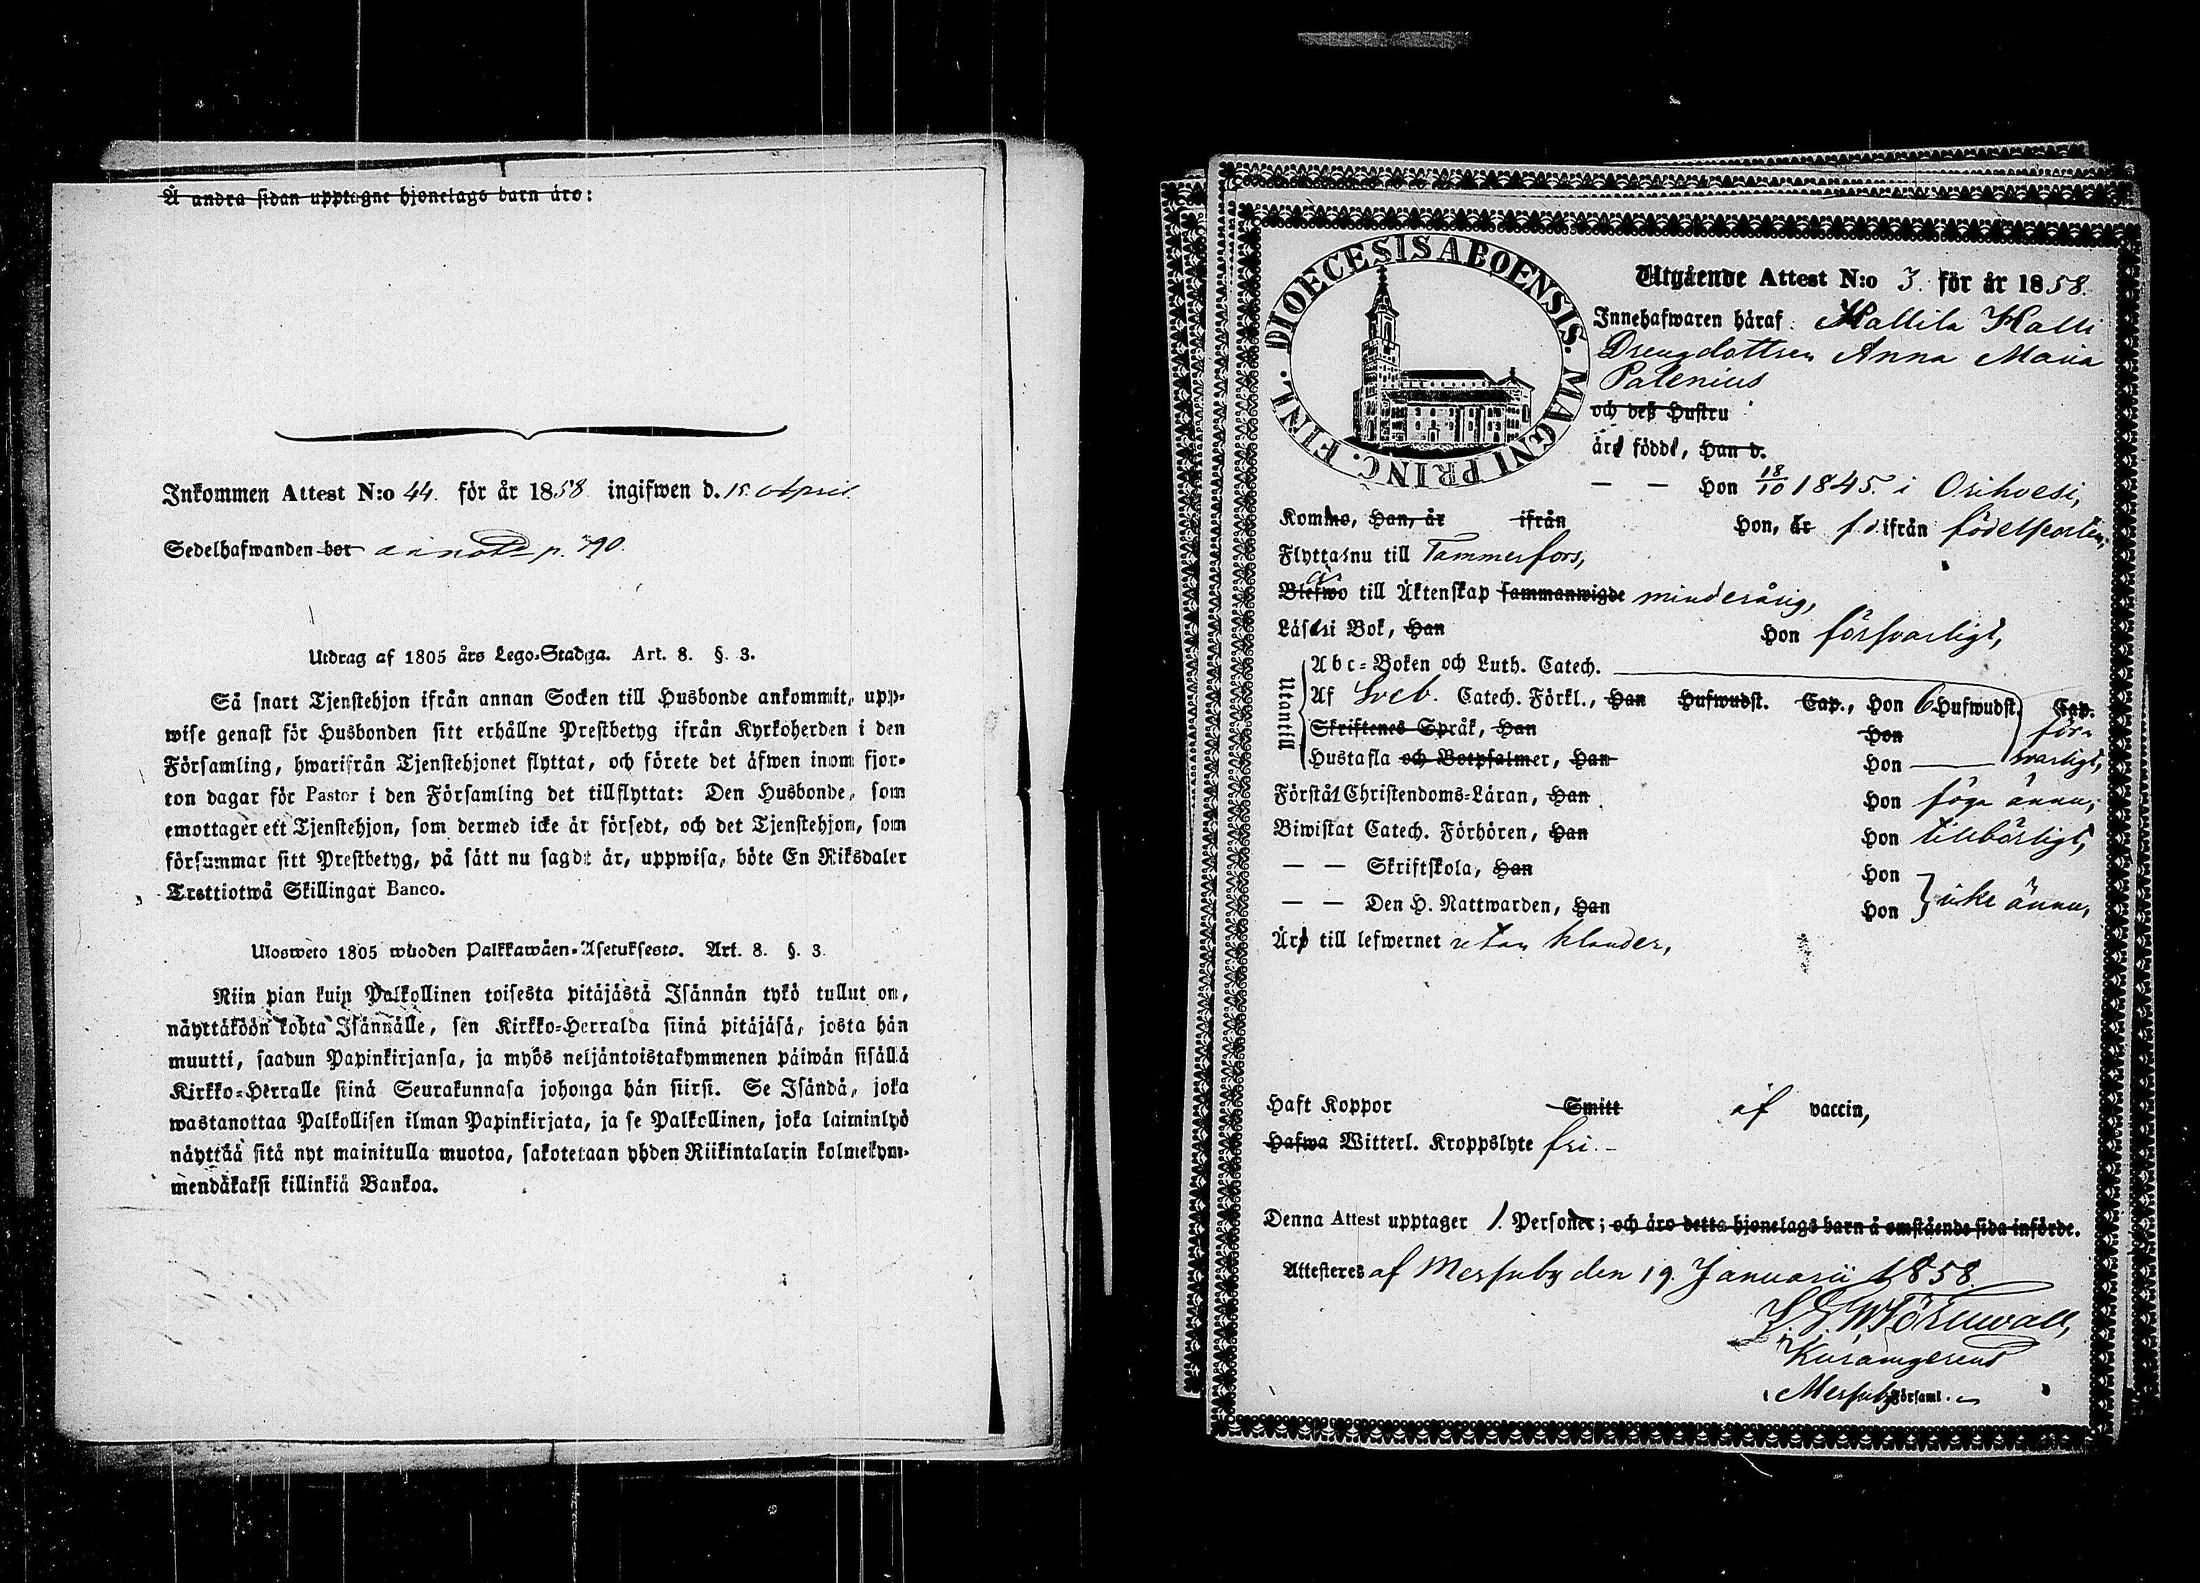 Å andra sidan upptagne hjonelags barn äro:
Inkommen Attest N:o 44. för år 1858 ingifwen d. 15 April
Sedelhafwanden bor annote p. 790.
Utdrag af 1805 års Lego-Stadga. Art. 8. §. 3.
Så snart Tjenstehjon ifrån annan Socken till Husbonde ankommit, upp-
wise genast för Husbonden sitt erhållne Prestbetyg ifrån Kyrkoherden i den
Församling, hwarifrån Tjenstehjonet flyttat, och förete det äfwen inom fjor-
ton dagar för Pastor i den Församling det tillflyttat: Den Husbonde, som
emottager ett Tjenstehjon, som dermed icke är försedt, och det Tjenstehjon, som
försummar sitt Prestbetyg, på sätt nu sagdt är, uppwisa, böte En Riksdaler
Trettiotwå Skillingar Banco.
Ulosweto 1805 wuoden Palkkawäen-Asetuksesta. Art. 8. §. 3.
Niin pian kuin Palkollinen toisesta pitäjästä Isännän tykö tullut on,
näyttäköön kohta Isännälle, sen Kirkko-Herralda siinä pitäjäsä, josta hän
muutti, saadun Papinkirjansa, ja myös neljäntoistakymmenen päiwän sisällä
Kirkko-Herralle siinä Seurakunnasa johonga hän siirsi. Se Isändä, joka
wastanottaa Palkollisen ilman Papinkirjata, ja se Palkollinen, joka laiminlyö
näyttää sitä nyt mainitulla muotoa, sakotetaan yhden Riikintalarin kolmekym-
mendäkaksi killinkiä Bankoa.
DIOECESIS ABOENSIS. MAGNI PRINC. FINL.
Utgående Attest N:o 3. för år 1858.
Innehafwaren häraf: Hallila Halli
Drengdottren Anna Maria
Palenius
och dess Hustru
äro födde, Han d.
— — Hon 18/10 1845. i Orihvesi,
Komno, Han, är ifrån Hon, är f. d. ifrån födelseorten,
Flyttas nu till Tammerfors,
Blefwo är till Äktenskap sammanwigde minderårig,
Läser i Bok, Han Hon försvarligt,
Utantill
Abc-Boken och Luth. Catech.
Af Sveb. Catech. Förkl., Han Hufwudst. Cap., Hon 6 Hufwudst. Cap.
Skriftenes Språk, Han Hon för-
Hustafla och Botpsalmer, Han Hon svarligt,
Förstår Christendoms-Läran, Han Hon föga ännu,
Biwistat Catech. Förhören, Han Hon tillbörligt,
— — Skriftskola, Han Hon
— — Den H. Nattwarden, Han Hon icke ännu,
Äro till lefwernet utan klander,
Haft Koppor Smitt af vaccin,
Hafwa Witterl. Kroppslyte fri. -
Denna Attest upptager 1. Personer; och äro detta hjonelags barn å omstående sida införde.
Attesteres af Messuby den 19. Januarii 1858.
Törnwall,
Messuby Församl.